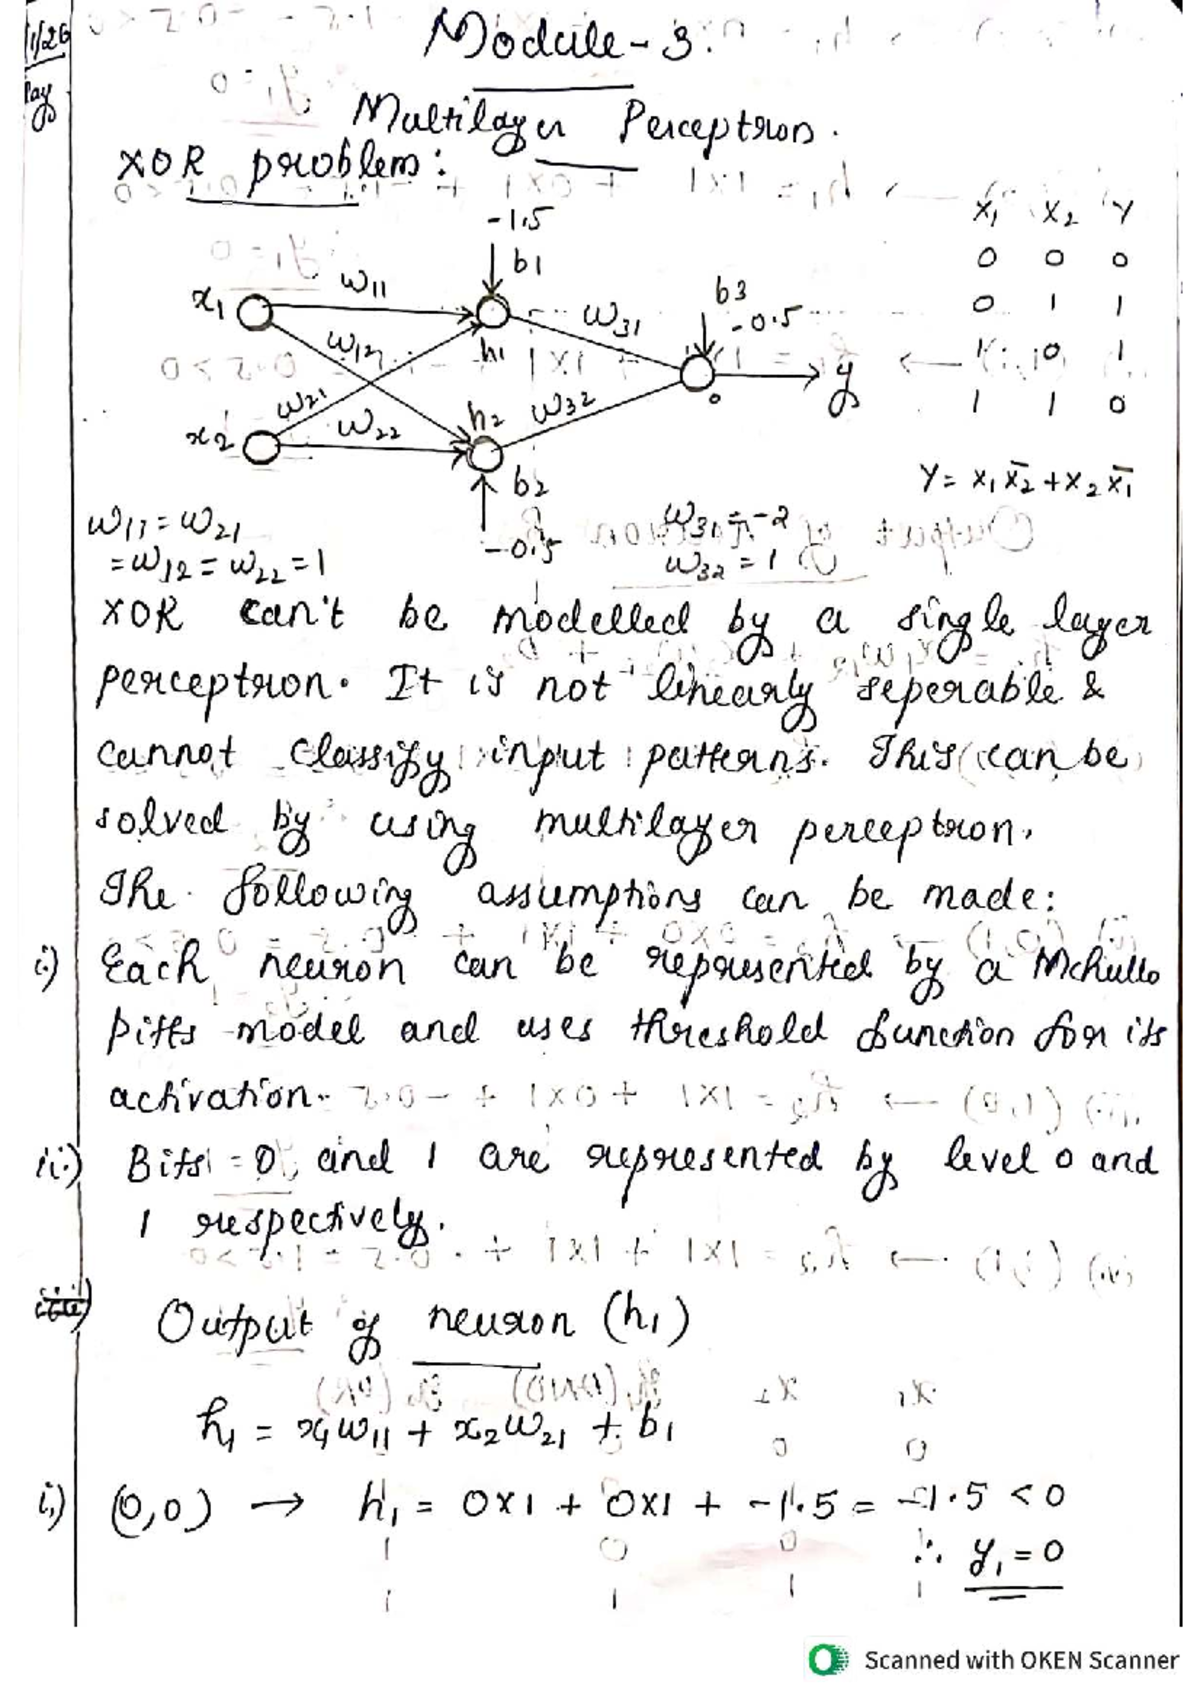 1/26
Module-3.
Multilayer Perceptron.
XOR problem:
X₁ X₂ Y
0 0 0
0 1 1
1 0 1
1 1 0
-1.5
b1
x₁
w11
h₁
w12
w21
x2
w22
h2
b2
-0.5
w31
w32
b3
-0.5
o
y
Y = X₁X̅₂ + X₂X̅₁
w11 = w21
= w12 = w22 = 1
w31 = -2
w32 = 1
XOR can't be modelled by a single layer
perceptron. It is not linearly seperable &
cannot classify input patterns. This can be
solved by using multilayer perceptron.
The following assumptions can be made:
i) Each neuron can be represented by a Mchullo
pitts model and uses threshold function for its
activation.
ii) Bits = 0 and 1 are represented by level 0 and
1 respectively.
Output of neuron (h₁)
h₁ = x₁w11 + x₂w21 + b₁
i) (0,0) → h₁ = 0x1 + 0x1 + -1.5 = -1.5 < 0
∴ y₁ = 0
Scanned with OKEN Scanner